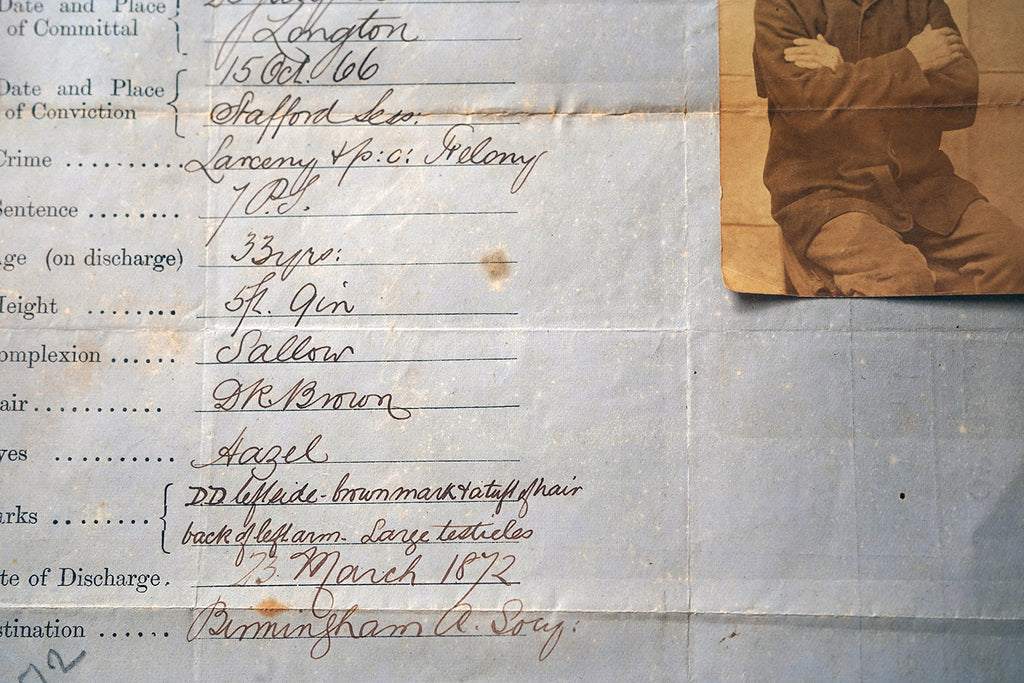 Date and Place
of Committal
Longton
15 Oct. 66
Date and Place
of Conviction
Stafford Sess:
Crime .......... Larceny & p: c: Felony
Sentence ........ 7 P.S.
Age (on discharge) 33yrs:
Height ........ 5ft. 9in
omplexion ...... Sallow
air........... DK. Brown
yes .......... Hazel
arks ........ D.D left side - brown mark & a tuft of hair
back of left arm - Large testicles
te of Discharge. March 1872
stination ...... Birmingham A. Socy:
72